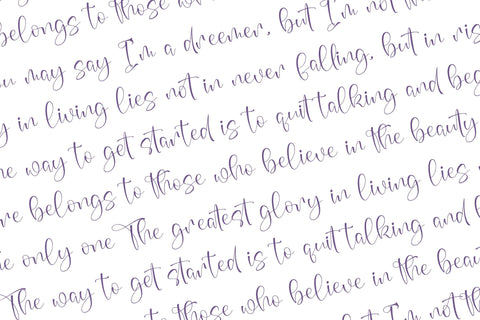 belongs to those who
you may say I'm a dreemer, but I'm not
in living lies not in never falling, but in ris
The way to get started is to quit talking and beg
belongs to those who believe in the beauty
only one The greatest glory in living lies
The way to get started is to quit talking and b
to those who believe in the beau
but I'm not t